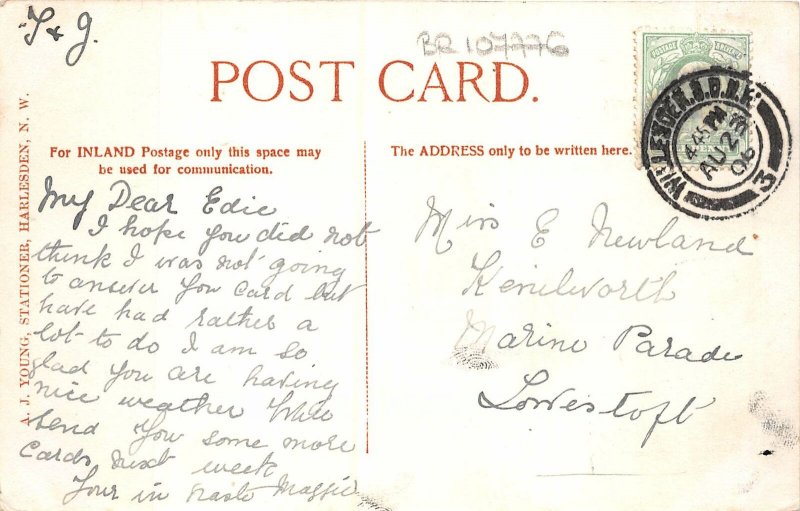 T & J.
BR 107776
POST CARD.
For INLAND Postage only this space may
be used for communication.
The ADDRESS only to be written here.
A. J. YOUNG, STATIONER, HARLESDEN, N. W.
My Dear Edie
I hope you did not
think I was not going
to answer you card but
have had rather a
lot to do I am so
glad you are having
nice weather Will
send you some more
Cards next week
Your in haste Maggie
Miss E Newland
Kenilworth
Marine Parade
Lowestoft
POSTAGE REVENUE
WILLESDEN.S.D.N.W
4.45 PM
AU 2
06
3